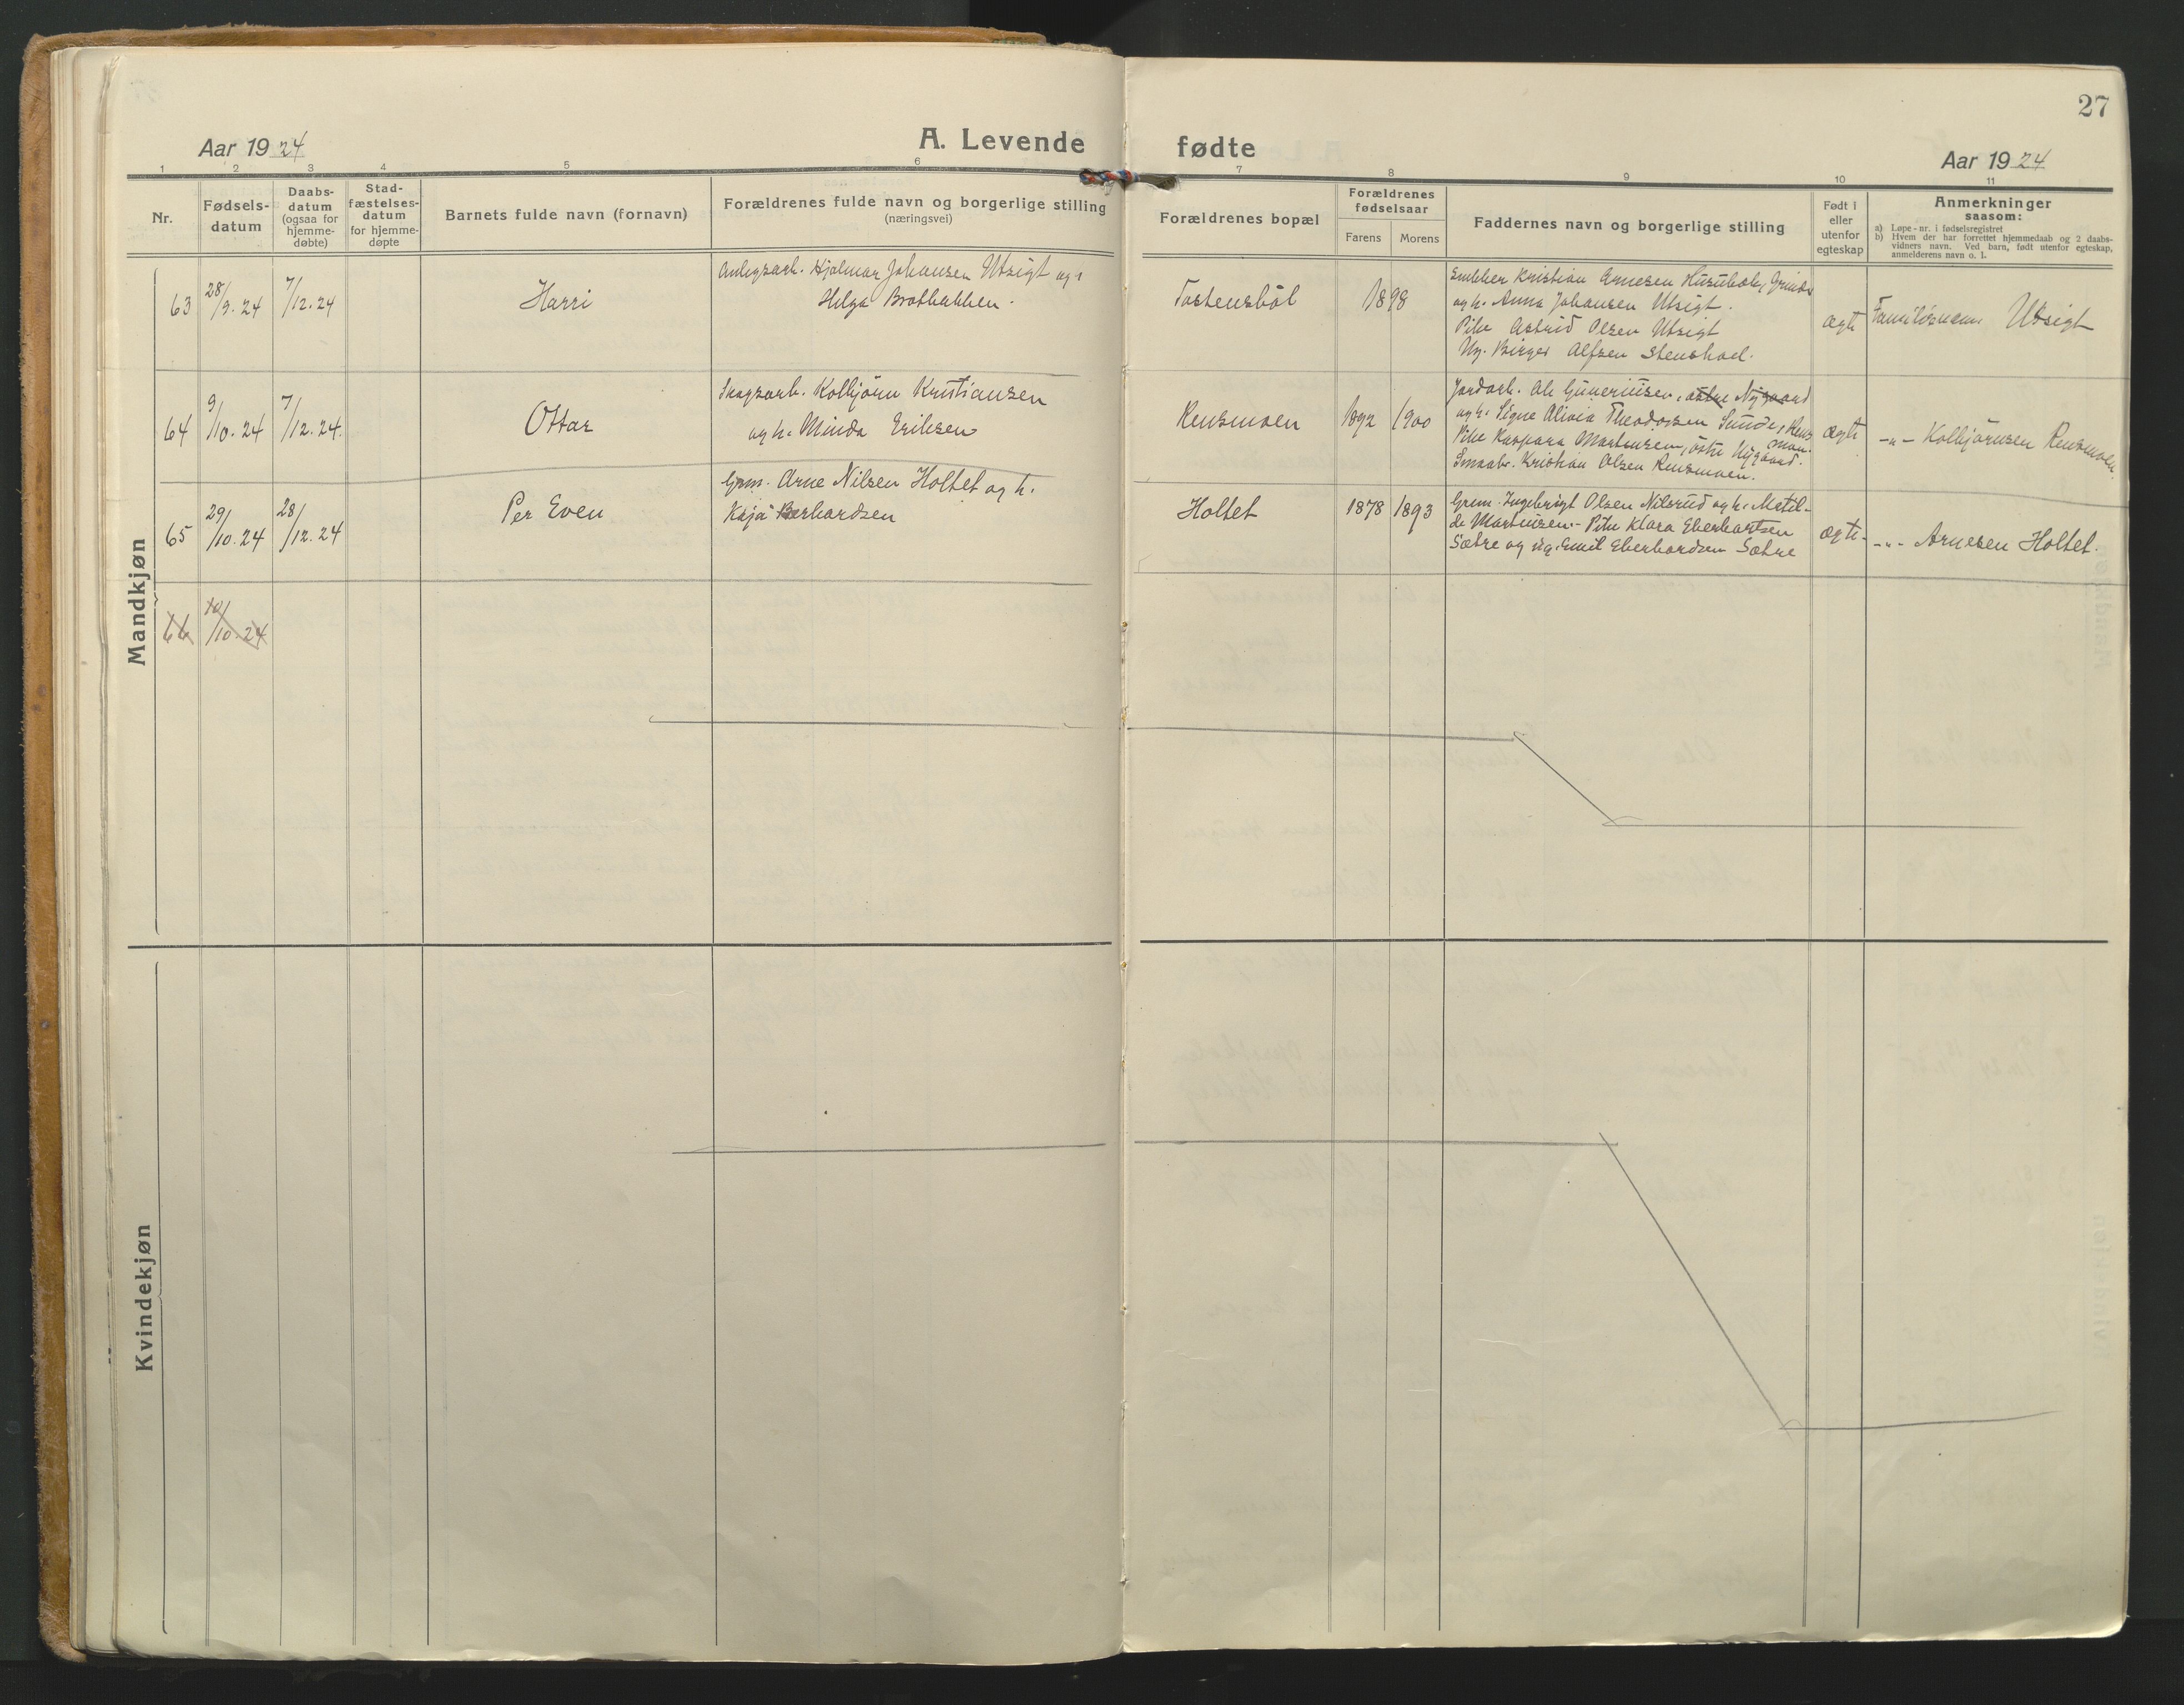 27
Aar 1924
A. Levende fødte
Aar 1924
1 2 3 4 5 6 7 8 9 10 11
Nr.
Fødsels-
datum
Daabs-
datum
(ogsaa for
hjemme-
døbte)
Stad-
fæstelses-
datum
for hjemme-
døpte
Barnets fulde navn (fornavn)
Forældrenes fulde navn og borgerlige stilling
(næringsvei)
Forældrenes bopæl
Forældrenes
fødselsaar
Farens
Morens
Faddernes navn og borgerlige stilling
Født i
eller
utenfor
egteskap
Anmerkninger
saasom:
a) Løpe-nr. i fødselsregistret
b) Hvem der har forrettet hjemmedaab og 2 daabs-
vidners navn. Ved barn, født utenfor egteskap,
anmelderens navn o. l.
Mandkjøn
63
28/9. 24
7/12. 24
Harri
Hjalmar Johansen Utsigt og
Helga Brotbakken.
Tostensböl
1898
Kristian Arnesen
og h. Anna Johansen Utsigt.
Pike Astrid Olsen Utsigt
Ug. Birger Alfsen
ægte
Utsigt
64
9/10. 24
7/12. 24.
Ottar
Skogsarb. Kolbjörn Kristiansen
og h. Minda Eriksen
Rensmoen
1892
1900
Jordarb. Ole Guneriusen, østre Nygaard
og h. Signe Alivia Theodorsen Sunde, Rens
moen.
Pike Kaspara Martinsen, östre Nygaard.
Smaabr. Kristian Olsen Rensmoen.
ægte
-"- Kolbjörnsen Rensmoen
65
29/10. 24
28/12. 24
Per Even
Grm. Arne Nilsen Holtet og h.
Kaja Berhardsen
Holtet
1878
1893
Grm. Ingebrigt Olsen Nilsrud og h. Matil-
de Martinsen.- Pike Klara Eberhartsen
Sætre og ug. Emil Eberhardsen Sætre
ægte.
-"- Arnesen Holtet.
66
10/10. 24
Kvindekjøn